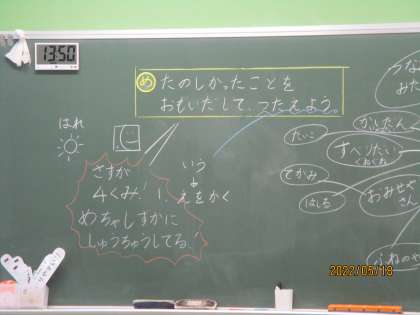 13:50
め たのしかったことを
おもいだして、つたえよう。
はれ
さすが
4くみ!!
めちゃしずかに
しゅうちゅうしてる!
いう
えをかく
たいこ
てがみ
はしる
すべりだい
おみせや
さん
2022/05/18